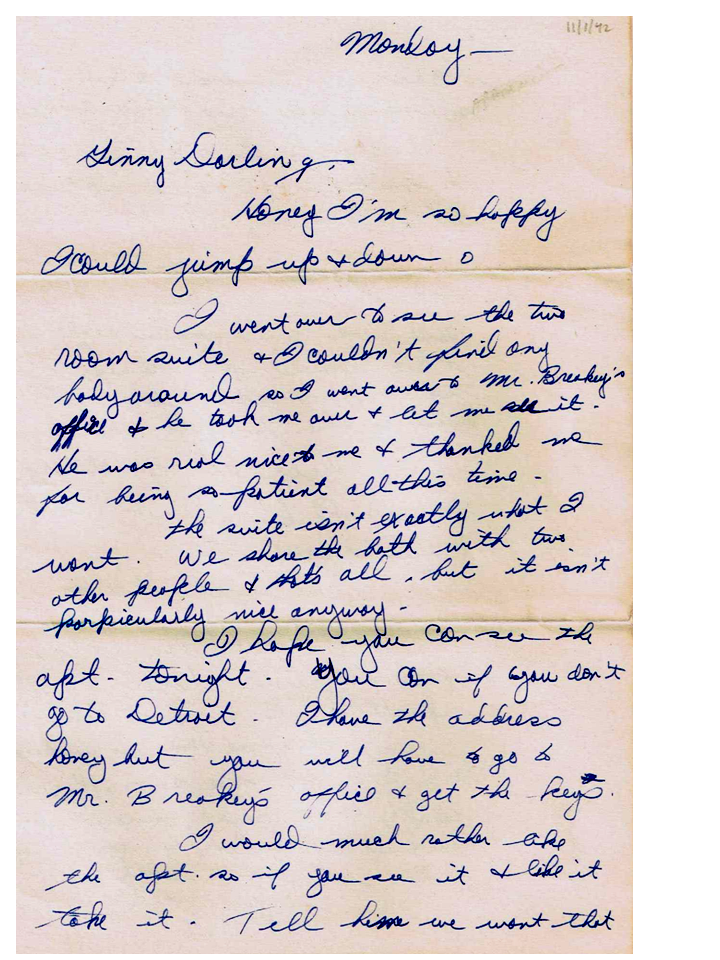 11/1/42
Monday —
Ginny Darling,
Honey I'm so happy
I could jump up & down o
I went over to see the two
room suite & I couldn't find any
body around, so I went over to Mr. Breakey's
office & he took me over & let me see it.
He was real nice to me & thanked me
for being so patient all this time -
the suite isn't exactly what I
want. We share the bath with two
other people & that's all, but it isn't
parpicularly nice anyway -
I hope you can see the
apt. tonight. You can if you don't
go to Detroit. I have the address
honey but you will have to go to
Mr. Breakey's office & get the keys.
I would much rather take
the apt. so if you see it & like it
take it. Tell him we want that